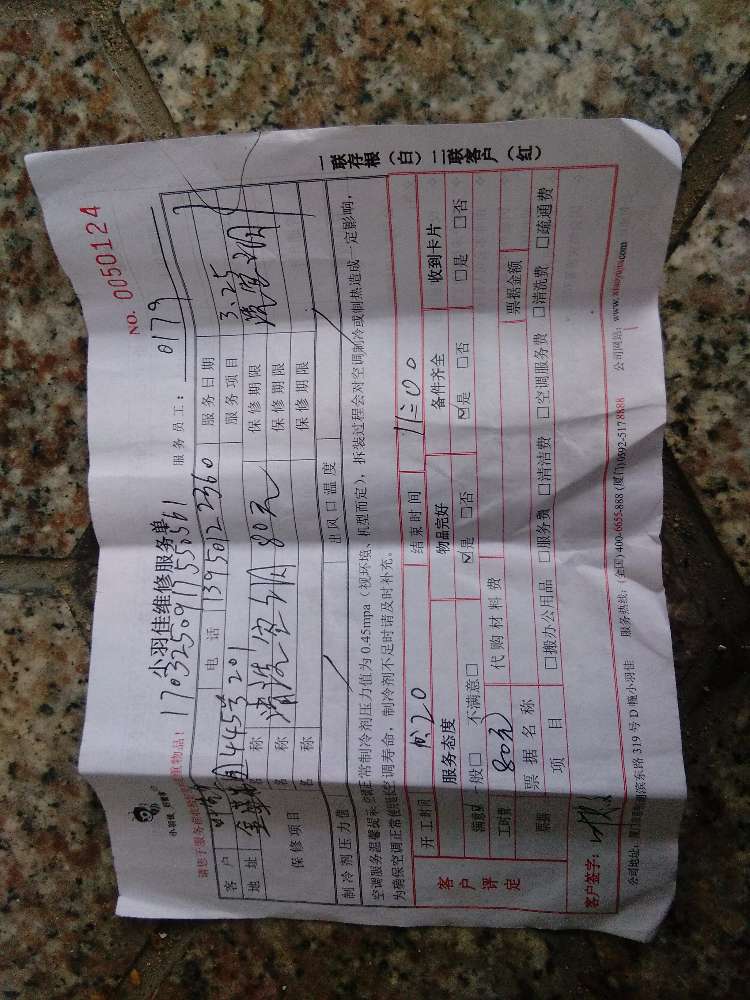 NO. 0050124
小羽佳维修服务单
17032509117550561
服务员工：0179
客户 电话 13950122360 服务日期 3.25
地址 445号201 服务项目 洗空调
保修项目 名称 清洗空调 80元 保修期限
名称 保修期限
名称 保修期限
制冷剂压力值 出风口温度
空调服务温馨提示：空调正常制冷剂压力值为0.45mpa（视环境、机型而定），拆装过程会对空调制冷或制热造成一定影响，
为确保空调正常使用及空调寿命，制冷剂不足时请及时补充。
开工时间 结束时间 11:00
客户评定 服务态度 物品完好 备件齐全 收到卡片
满意 一般□ 不满意□ ☑是 □否 ☑是 □否 □是 □否
工时费 80元 代购材料费 票据金额
票据 票据名称
项目 □搬办公用品 □服务费 □清洁费 □空调服务费 □清洗费 □疏通费
客户签字：
公司地址： 湖滨东路319号D幢小羽佳 服务热线：(全国)400-6655-888 (厦门)0592-5178888 公司网站：www.xiaoyujia.com
一联存根（白）二联客户（红）